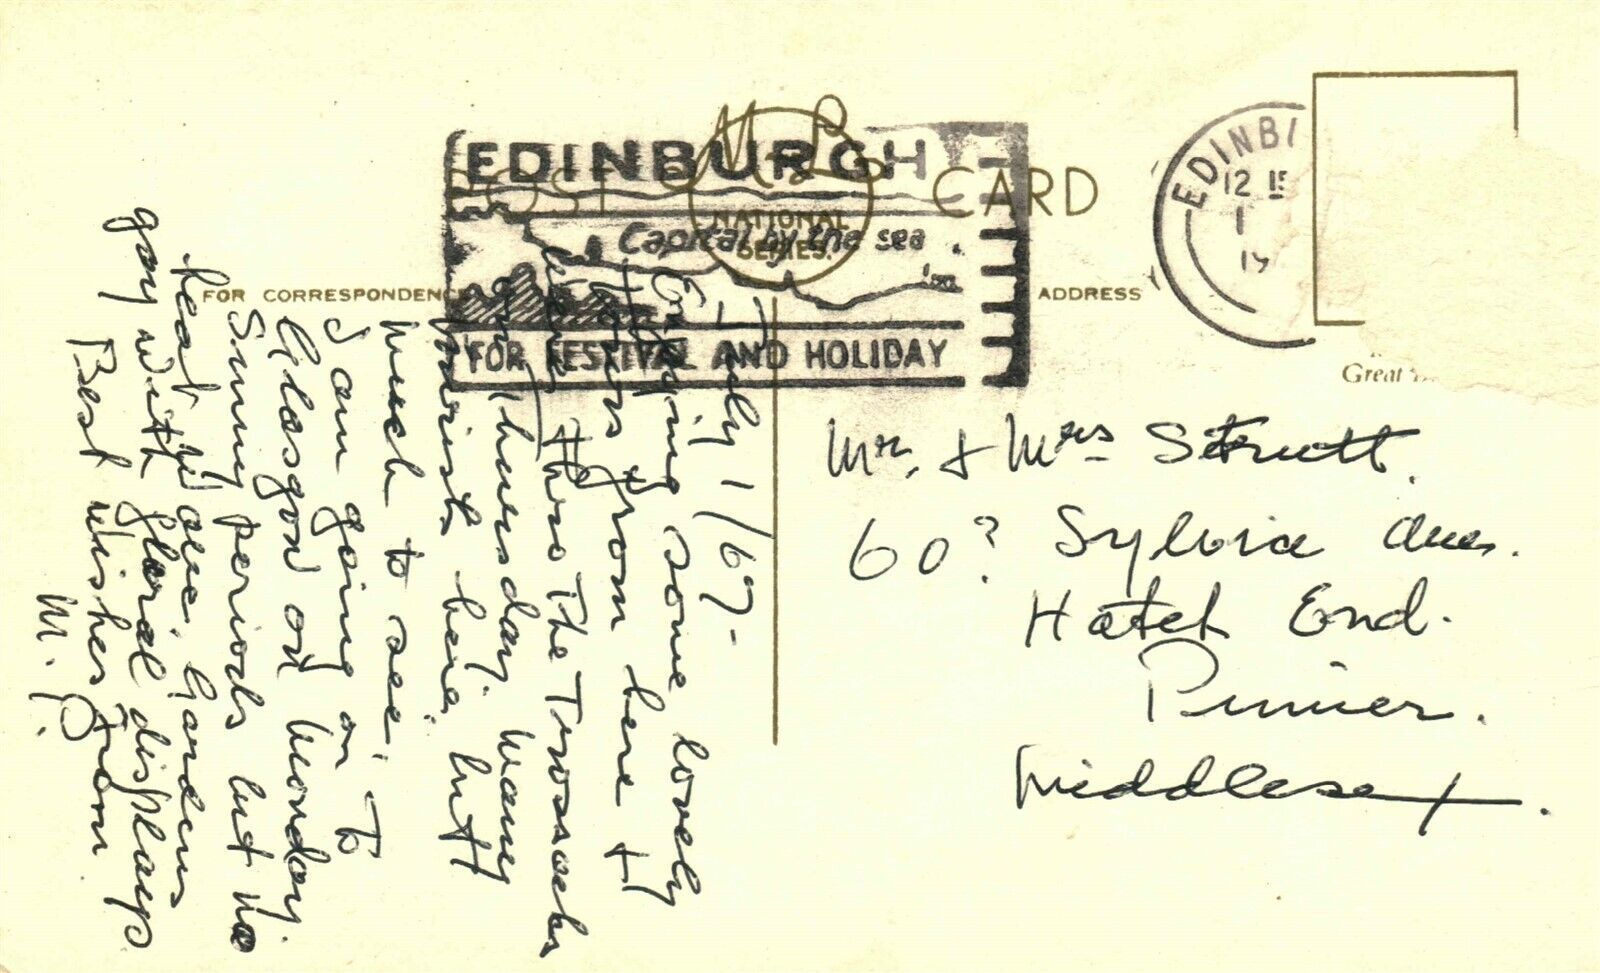 EDINBURGH
Capital by the sea
FOR FESTIVAL AND HOLIDAY
POST CARD
NATIONAL
SERIES.
EDINBU
12 15
1
19
FOR CORRESPONDENCE
ADDRESS
Great
July 1/67-
Enjoying some lovely
tours from here +
were thro The Trossachs
on Thursday. Many
tourists here but
much to see, To
I am going on to
Glasgow on Monday.
Sunny periods but no
heat wave. Gardens
gay with floral displays
Best wishes from
M.
Mr. & Mrs Strutt.
60? Sylvia Ave.
Hatch End.
Pinner.
Middlesex.